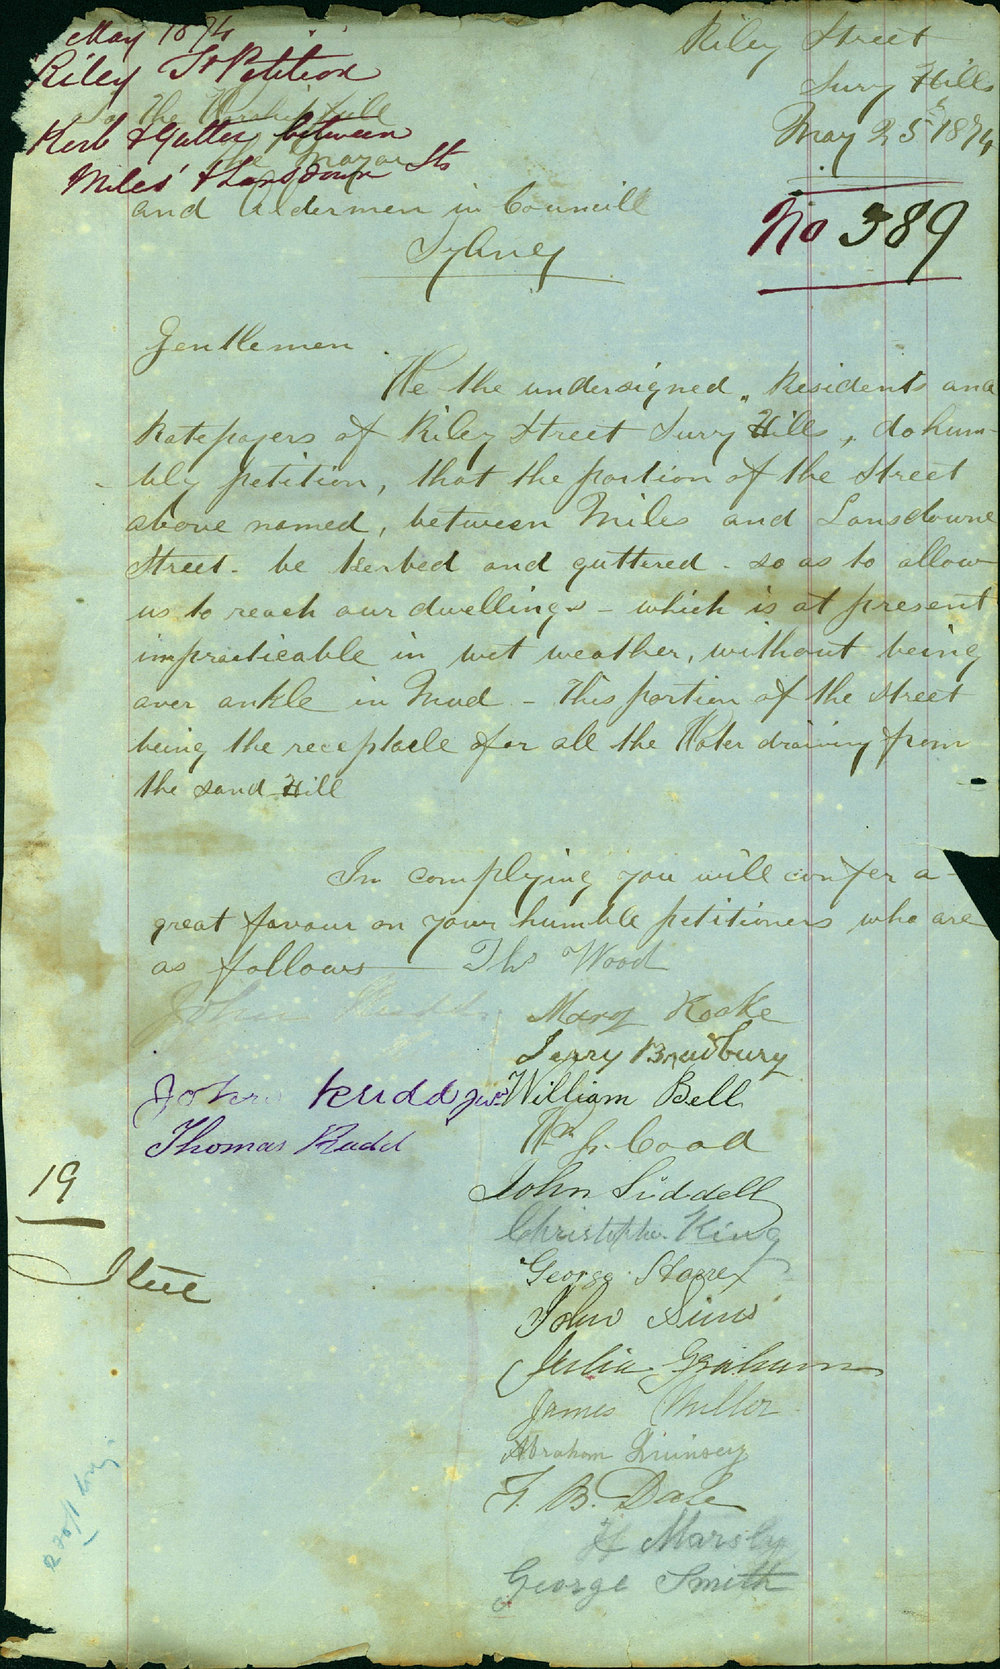 May 1874
Riley St Petition
Kerb & Gutter between
Miles' & Lansdown Sts
Riley Street
Surry Hills
May 25th 1874
No 389
To The Worshipfull
the Mayor
and Aldermen in Councill
Sydney
Gentlemen
We the undersigned, Residents and
Ratepayers of Riley Street Surry Hills, do hum-
bly petition, that the portion of the Street
above named, between Miles and Lansdowne
Street - be kerbed and guttered - so as to allow
us to reach our dwellings - which is at present
impracticable in wet weather, without being
over ankle in Mud - This portion of the street
being the receptacle for all the Water draining from
the sand Hill
In complying you will confer a
great favour on your humble petitioners who are
as follows Thos Wood
John Rudd
Mary Roake
Jerry Bradbury
John Rudd Jun
William Bell
Thomas Rudd
Wm G. Coad
19
John Siddell
Christopher King
George
John Sims
Julia Graham
James Miller
Abraham
F. B. Dale
H Marsly
George Smith